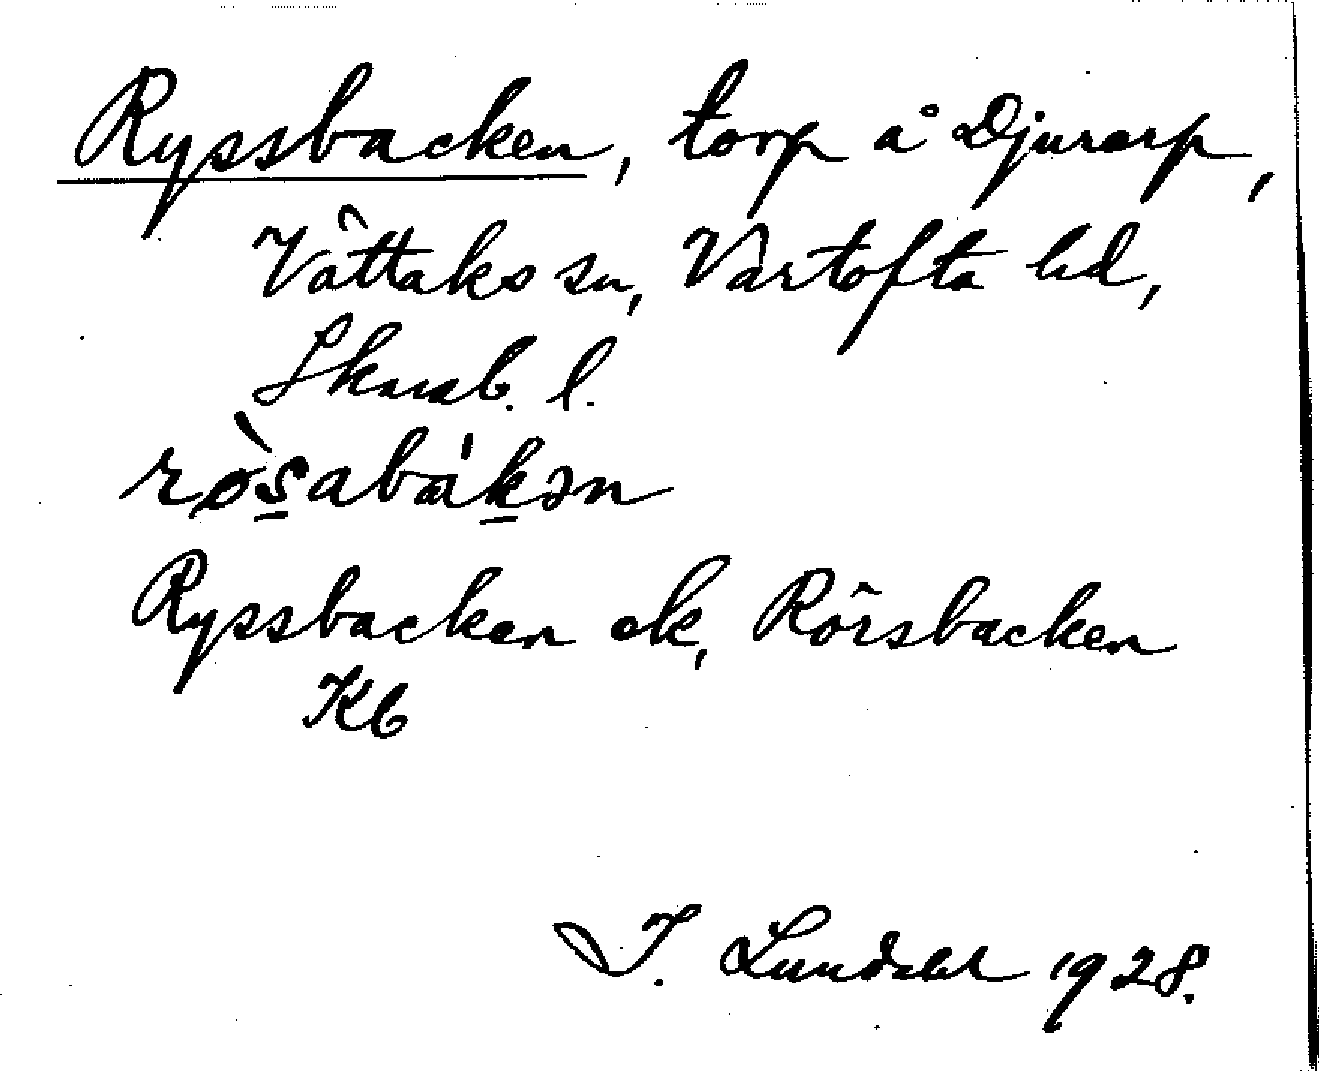 Ryssbacken, torp å Djurarp,
Våttaks sn, Vartofta hd,
Skarab. l.
rø̀s̱abáḵən
Ryssbacken ek, Rörsbacken
Kb
I. Lundahl 1928.